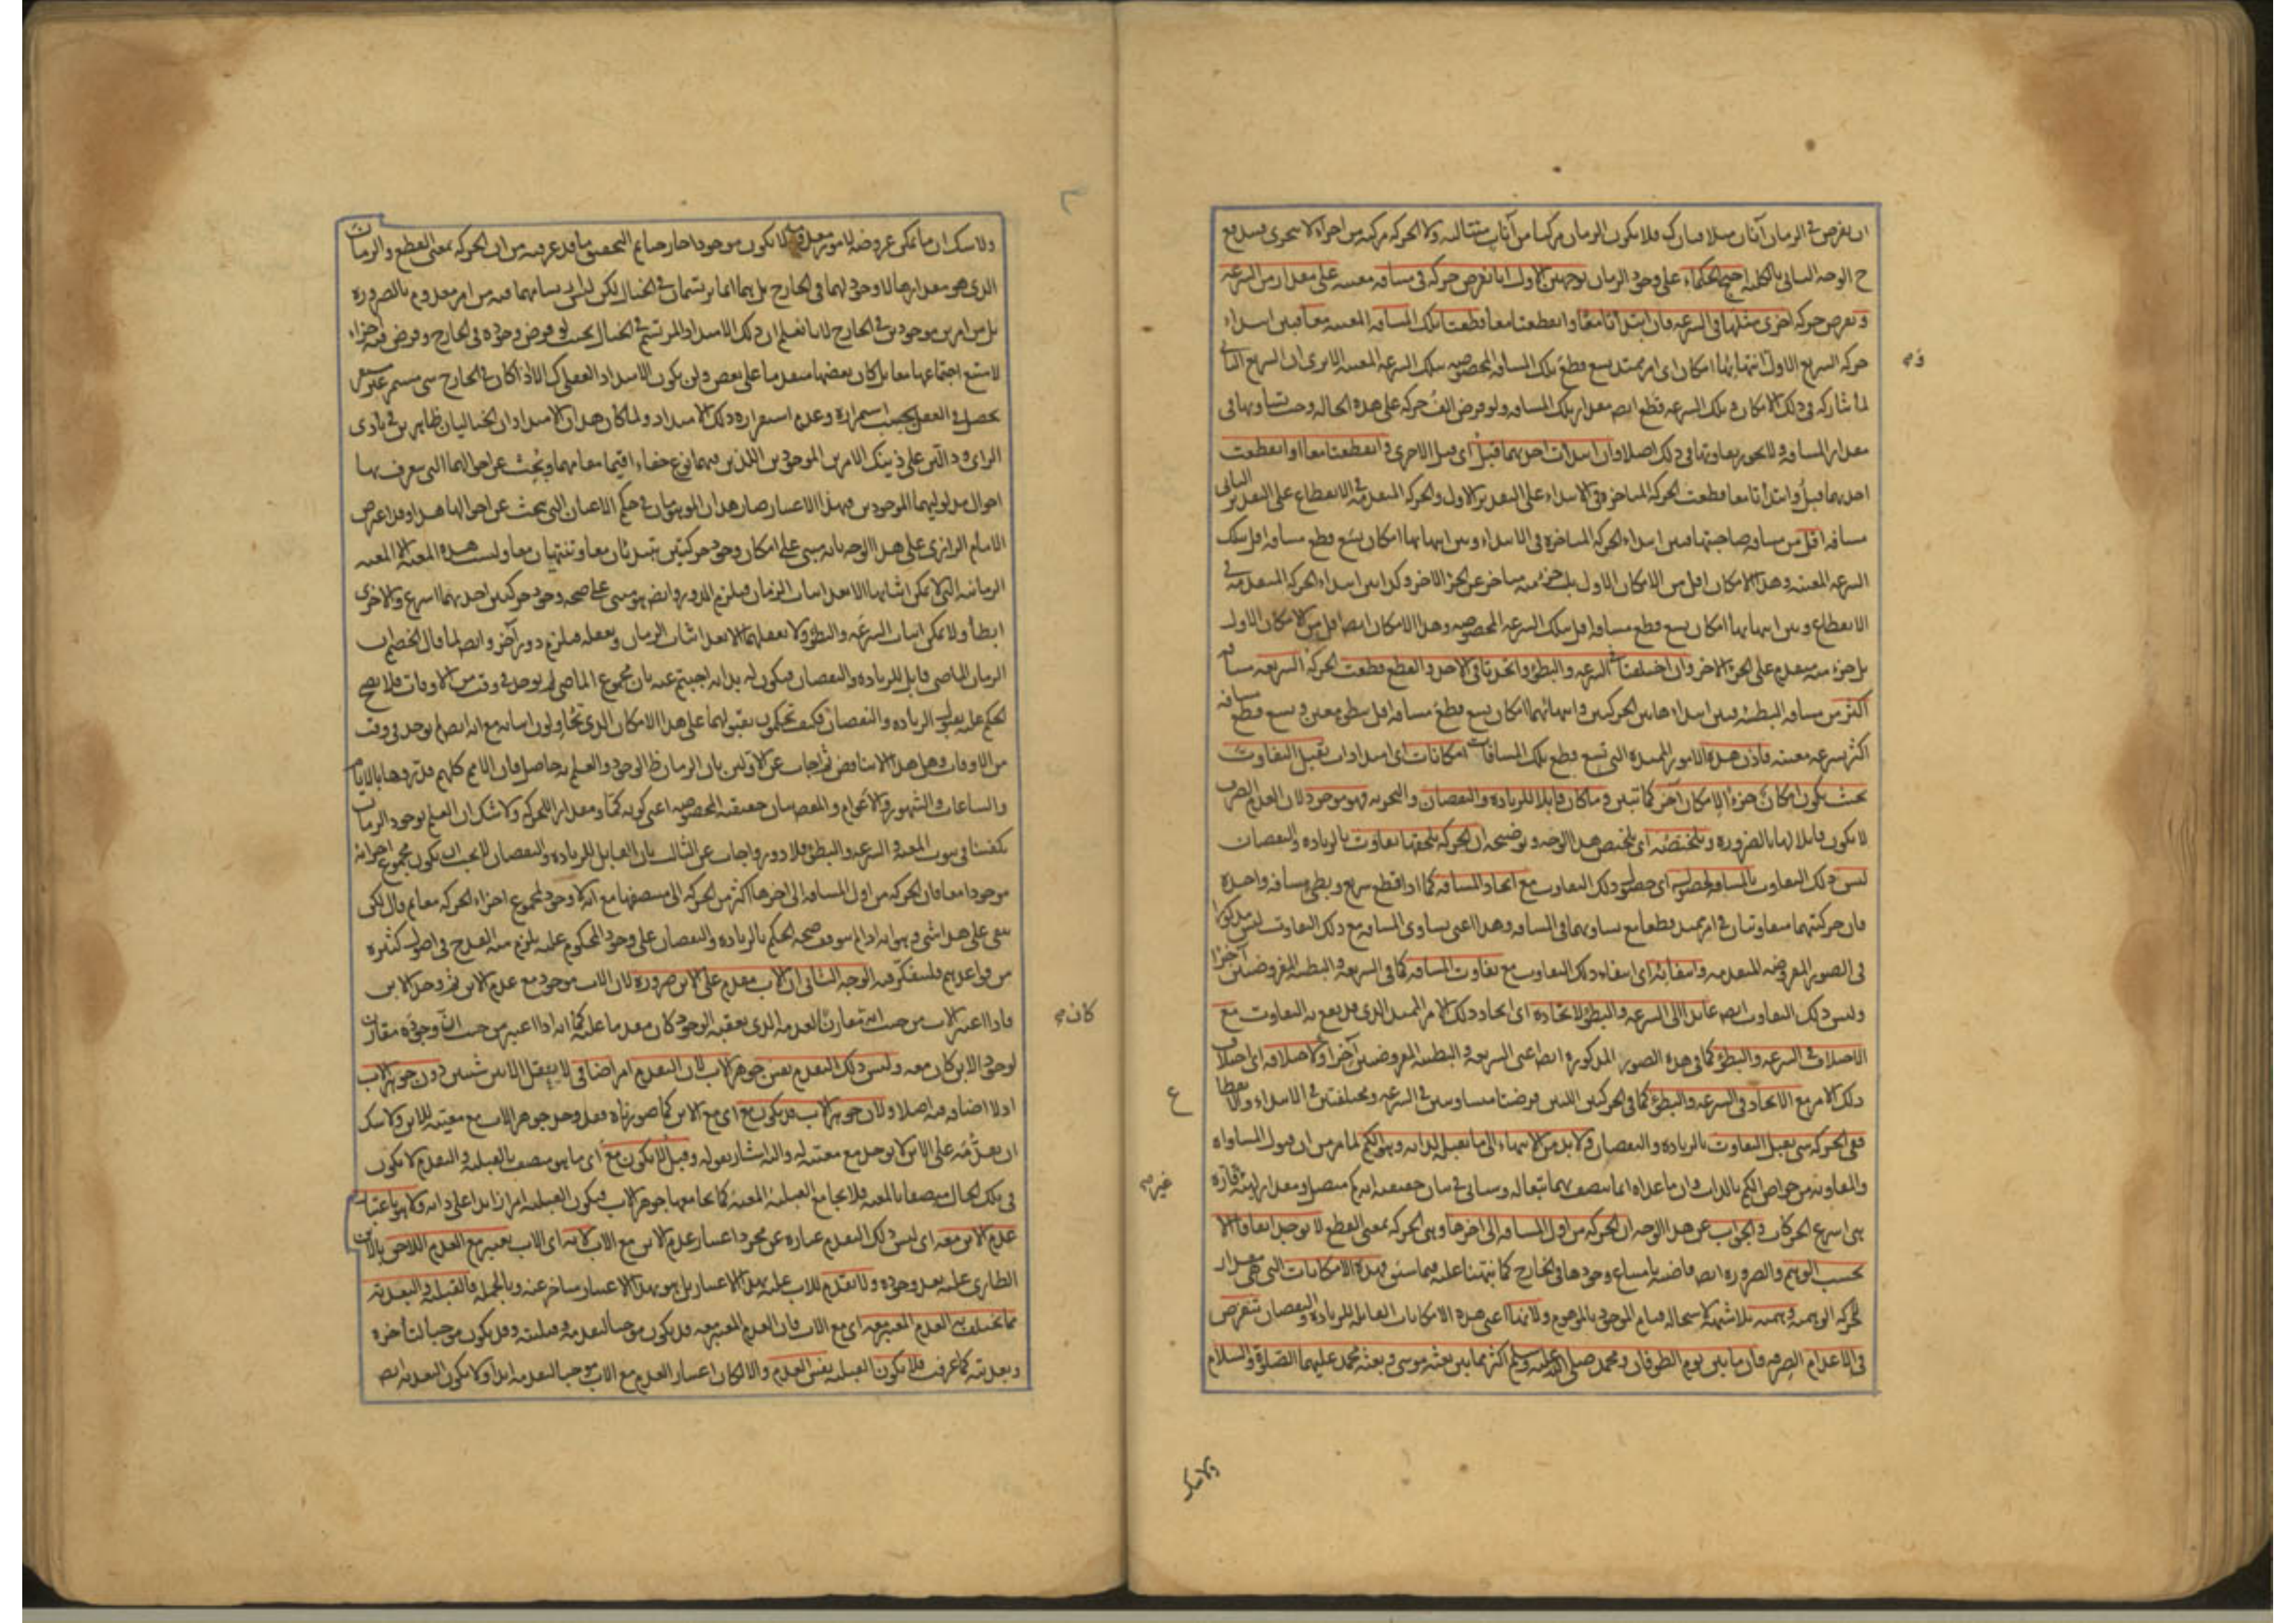 ان يفرض في الزمان آنان متلاقيان فلا يكون الزمان مركبا من آنات متتالية ولا الحركة مركبة من اجزاء لا تتجزى فيندفع
ح الوجه الثاني بالكلية احتج الحكماء على وجود الزمان بوجهين الاول انا نفرض حركة في مسافة معينة على مقدار من السرعة
و نفرض حركة اخرى مثلها في السرعة فان ابتدأتا معا وانقطعتا معا قطعتا تلك المسافة المعينة معا فبين ابتداء
حركة السريع الاول وانتهائها امكان اى امر ممتد يسع قطع تلك المسافة المخصوصة بتلك السرعة المعينة الا يرى ان السريع الثاني
لما شاركه في ذلك الامكان و تلك السرعة قطع ايضا مقدار تلك المسافة ولو فرض الف حركة على هذه الحالة وجب تساويها في
مقدار المسافة ولا يجوز تفاوتها في ذلك اصلا وان ابتدأت احديهما قبل اى قبل الاخرى و انقطعتا معا او انقطعت
احديهما قبل وابتدأتا معا قطعت الحركة المتاخرة في الابتداء على التقدير الاول والحركة المتقدمة في الانقطاع على التقدير الثاني
مسافة اقل من مسافة صاحبتها فبين ابتداء الحركة المتاخرة في الابتداء وبين انتهائها امكان يسع قطع مسافة اقل بتلك
السرعة المعينة وهذا الامكان اقل من الامكان الاول بل جزء منه متاخر عن الجزء الاخر وكذا بين ابتداء الحركة المتقدمة في
الانقطاع وبين انتهائها امكان يسع قطع مسافة اقل بتلك السرعة المخصوصة وهذا الامكان ايضا اقل من الامكان الاول
بل جزء منه متقدم على الجزء الاخر وان اختلفتا في السرعة والبطؤ واتحدتا في الاخذ والقطع قطعت الحركة السريعة مسافة
اكثر من مسافة البطيئة فبين ابتداء هاتين الحركتين وانتهائهما امكان يسع قطع مسافة اقل ببطؤ معين و يسع قطع مسافة
اكثر بسرعة معينة فاذن هذه الامور الممتدة التي تسع قطع تلك المسافات امكانات اى امتدادات تقبل التفاوت
بحيث يكون امكان جزء لامكان آخر كما تبين و ما كان قابلا للزيادة والنقصان والتجزية فهو موجود لان العدم الصرف
لا يكون قابلا لها بالضرورة و تلخيصه اى تلخيص هذا الوجه و توضيحه ان الحركة يلحقها تفاوت بالزيادة والنقصان
ليس ذلك التفاوت بالمسافة لحصوله اى حصول ذلك التفاوت مع اتحاد المسافة كما اذا قطع سريع و بطئ مسافة واحدة
فان حركتيهما متفاوتتان في امر ممتد قطعا مع تساويهما في المسافة وهذا اعنى تساوى المسافة مع ذلك التفاوت ليس مذكورا
في الصور المفروضة المتقدمة وانتفائه اى انتفاء ذلك التفاوت مع تفاوت المسافة كما في السريعة والبطيئة المفروضتين آخرا
وليس ذلك التفاوت ايضا عائدا الى السرعة والبطؤ لاتحاده اى اتحاد ذلك الامر الممتد الذى قد يقع به التفاوت مع
الاختلاف في السرعة والبطؤ كما في هذه الصور المذكورة ايضا اعنى السريعة و البطيئة المفروضتين آخرا ولاختلافه اى اختلاف
ذلك الامر مع الاتحاد في السرعة والبطؤ كما في الحركتين اللتين فرضتا متساويتين في السرعة ومختلفتين في الابتداء والانقطاع
ففى الحركة شئ يقبل التفاوت بالزيادة والنقصان ولا بد من الانتهاء الى ما يقبله لذاته وهو الكم لما مر من ان قبول المساواة
والمفاوتة من خواص الكم بالذات وان ما عداه انما يتصف بهما تبعا له وسياتي في بيان حقيقته انه كم متصل ومقدار لهيئة قارة
هى اسرع الحركات و الجواب عن هذا الوجه ان الحركة من اول المسافة الى اخرها وهى الحركة بمعنى القطع لا توجد اتفاقا الا
بحسب الوهم والضرورة ايضا قاضية بامتناع وجودها في الخارج كما نبهتنا عليه فيما سبق فهذه الامكانات التي هى مقدار
للحركة الوهمية وهمية بلا شبهة لاستحالة قيام الموجود بالموهوم ولانها اعنى هذه الامكانات القابلة للزيادة والنقصان تفرض
في الاعدام الصرفة فان ما بين يوم الطوفان و محمد صلى الله عليه وسلم اكثر مما بين بعثة موسى و بعثة محمد عليهما الصلوة والسلام
ولا شك
ولا شك ان ما يمكن عروضه لامور معدومة لا يكون موجودا خارجيا ثم التحقيق ما قد عرفته من ان الحركة بمعنى القطع والزمان
الذى هو مقدارها لا وجود لهما في الخارج بل هما انما يرتسمان في الخيال لكن ليس ارتسامهما فيه من امر معدوم بالضرورة
بل من امرين موجودين في الخارج لانا نعلم ان ذلك الامتداد المرتسم في الخيال بحيث لو فرض وجوده في الخارج و فرض فيه اجزاء
لامتنع اجتماعها معا بل كان بعضها متقدما على بعض ولن يكون الامتداد العقلى كذلك الا اذا كان في الخارج شئ مستمر غير مستقر
يحصل في العقل بحسب استمراره وعدم استقراره ذلك الامتداد ولما كان هذان الامتدادان الخياليان ظاهرين في بادى
الراى و دالين على ذينك الامرين الموجودين اللذين فيهما نوع خفاء اقيما مقامهما وبحث عن احوالهما التي يتعرف بها
احوال مدلوليهما الموجودين فبهذا الاعتبار صار هذان الموهومان في حكم الاعيان التي يبحث عن احوالها هذا وقد اعترض
الامام الرازى على هذا الوجه بانه مبنى على امكان وجود حركتين تبتدئان معا وتنتهيان معا وليست هذه المعية الا المعية
الزمانية التي لا يمكن اثباتها الا بعد اثبات الزمان فيلزم الدور وايضا هو مبنى على صحة وجود حركتين احديهما اسرع والاخرى
ابطأ ولا يمكن اثبات السرعة والبطؤ ولا تعقلهما الا بعد اثبات الزمان وتعقله فيلزم دور آخر وايضا لما قال الخصم ان
الزمان الماضى قابل للزيادة والنقصان فيكون له بداية اجبتم عنه بان مجموع الماضى لم يوجد في وقت من الاوقات فلا يصح
الحكم عليه بقبول الزيادة والنقصان فكيف تحكمون بقبولهما على هذا الامكان الذى تحاولون اثباته مع انه ايضا لم يوجد في وقت
من الاوقات وهل هذا الا تناقض ثم اجاب عن الاولين بان الزمان ظاهر الوجود والعلم به حاصل فان الامم كلهم قدروها بالايام
والساعات والشهور والاعوام والمقصود بيان حقيقته المخصوصة اعنى كونه كما و مقدارا للحركة ولا شك ان العلم بوجود الزمان
يكفينا في ثبوت المعية و السرعة والبطؤ فلا دور واجاب عن الثالث بان القابل للزيادة والنقصان لا يجب ان يكون مجموع اجزائه
موجودا معا فان الحركة من اول المسافة الى اخرها اكثر من الحركة الى منتصفها مع انه لا وجود لمجموع اجزاء الحركة معا ثم قال لكن
بقى على هذا شئ وهو انه اذا لم يتوقف صحة الحكم بالزيادة والنقصان على وجود المحكوم عليه يلزم منه القدح في اصول كثيرة
من قواعدهم فليتفكر فيه الوجه الثاني ان الاب مقدم على الابن ضرورة لان الاب موجود مع عدم الابن ثم وجد الابن
فاذا اعتبر الاب من حيث انه مقارن العدم الذى يعقبه الوجود كان مقدما عليه كما انه اذا اعتبر من حيث ان وجوده مقارن
لوجود الابن كان معه وليس ذلك التقدم نفس جوهر الاب لان التقدم امر اضافى لا يعقل الا بين شيئين دون جوهر الاب
اذ لا اضافة فيه اصلا ولان جوهر الاب قد يكون مع اى مع الابن كما صورناه فقد وجد جوهر الاب مع معيته للابن ولا شك
ان تقدمه على الابن لا يوجد مع معيته له والىه اشار بقوله وقبل لا يكون مع اى ما هو متصف بالقبلية والتقدم لا يكون
في تلك الحال متصفا بالمعية فلا يجامع القبلية المعية كما يجامعها جوهر الاب فيكون القبلية امرا زائدا على ذاته ولا هو باعتبار
عدم الابن معه اى ليس ذلك التقدم عبارة عن مجرد اعتبار عدم الابن مع الاب لانه اى الاب يعتبر مع العدم اللاحق بالابن
الطارى عليه بعد وجوده ولا تقدم للاب عليه بهذا الاعتبار بل هو بهذا الاعتبار متاخر عنه وبالجملة فالقبلية والبعدية
مما يختلف به العدم المعتبر معه اى مع الاب فان العدم المعتبر معه قد يكون موجبا لتقدمه وقبليته وقد يكون موجبا لتأخره
وبعديته كما عرفت فلا يكون القبلية نفس العدم والا لكان اعتبار العدم مع الاب موجبا لتقدمه ابدا ولا يكون التقدم ايضا